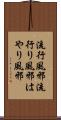 流行風邪流
行り風邪は
やり風邪